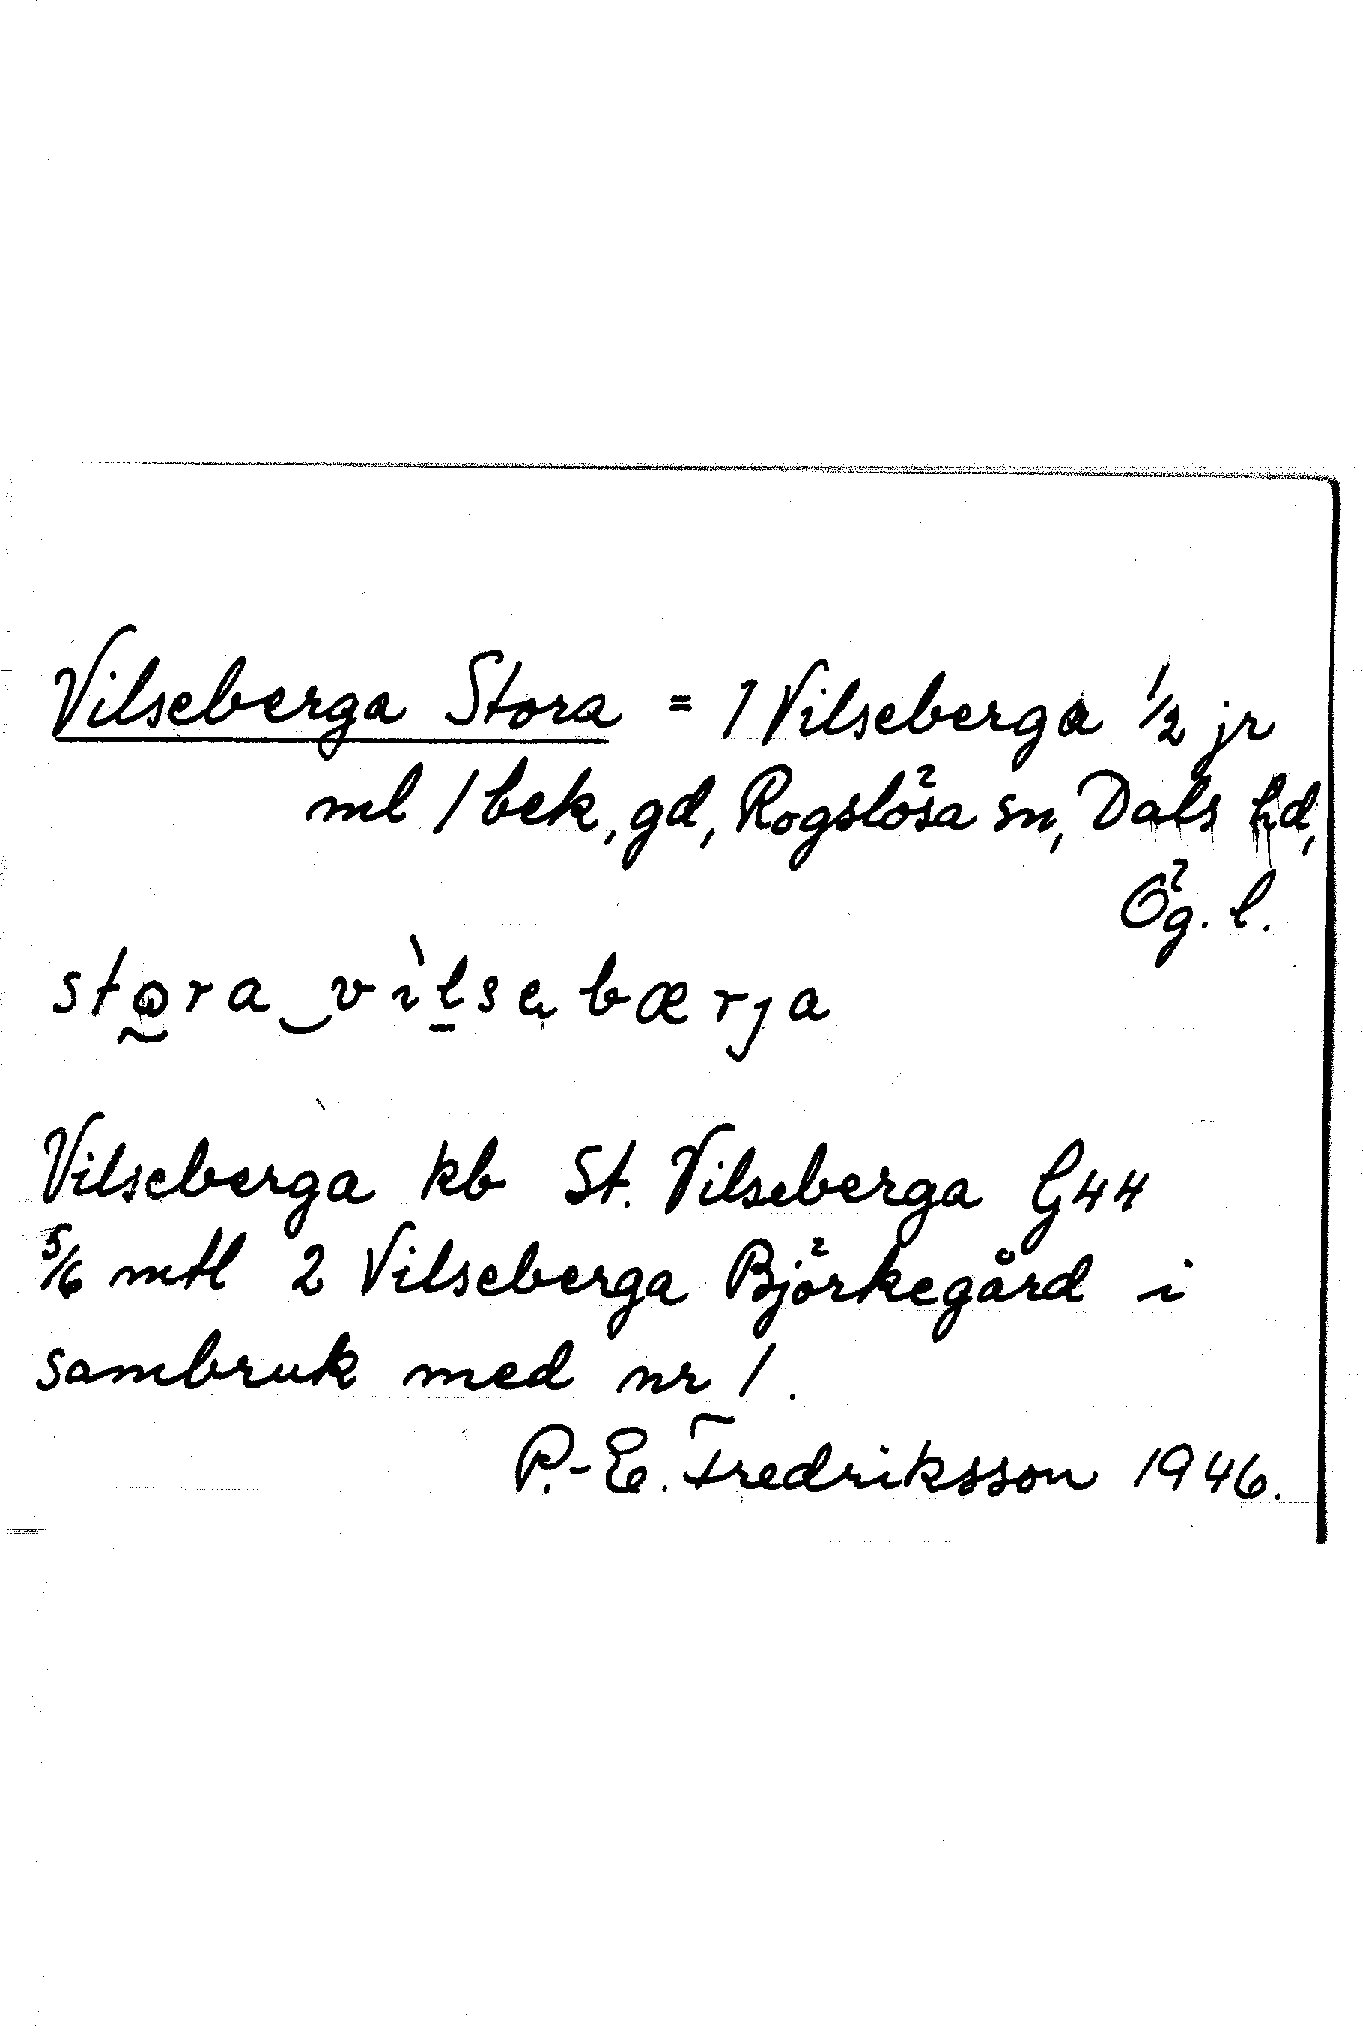 Vilseberga Stora = 1 Vilseberga 1/2 jr
ml 1 bek, gd, Rogslösa sn, Dals hd,
Ög. l.
stora vìlsebærja
Vilseberga kb St. Vilseberga G44
5/6 mtl 2 Vilseberga Björkegård i
sambruk med nr 1.
P.-E. Fredriksson 1946.